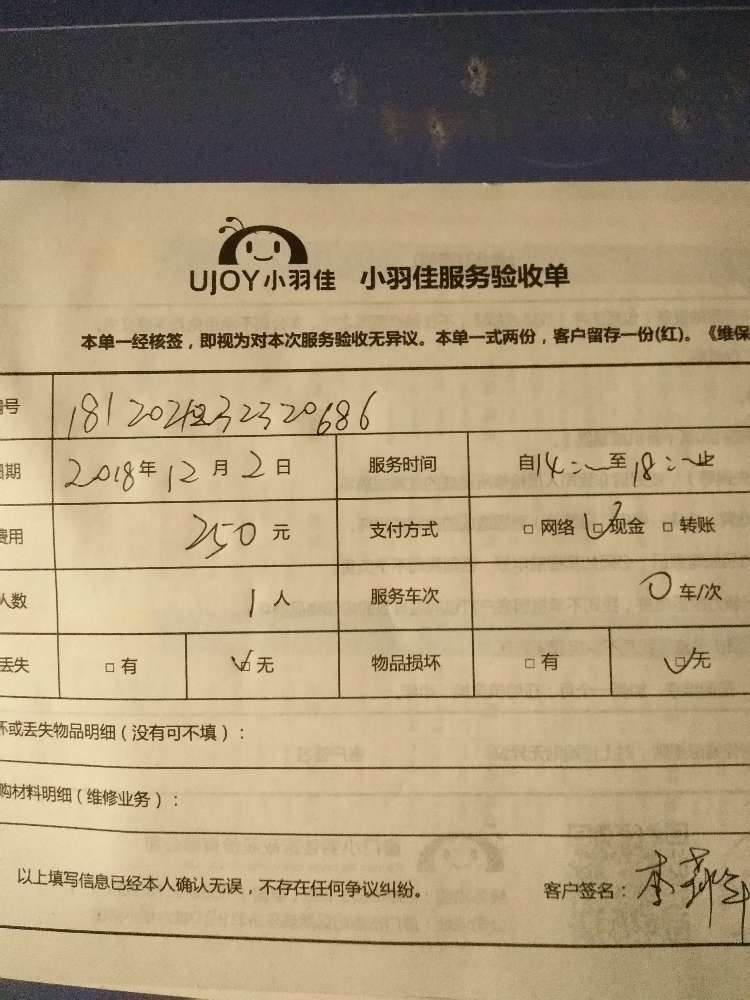 UJOY小羽佳 小羽佳服务验收单
本单一经核签，即视为对本次服务验收无异议。本单一式两份，客户留存一份(红)。《维保
号
2018年12月2日 服务时间 自14: 至18:
费用 250元 支付方式 □ 网络 □ 现金 □ 转账
人数 1人 服务车次 0车/次
丢失 □ 有 □ 无 物品损坏 □ 有 □ 无
坏或丢失物品明细（没有可不填）：
购材料明细（维修业务）：
以上填写信息已经本人确认无误，不存在任何争议纠纷。 客户签名：李